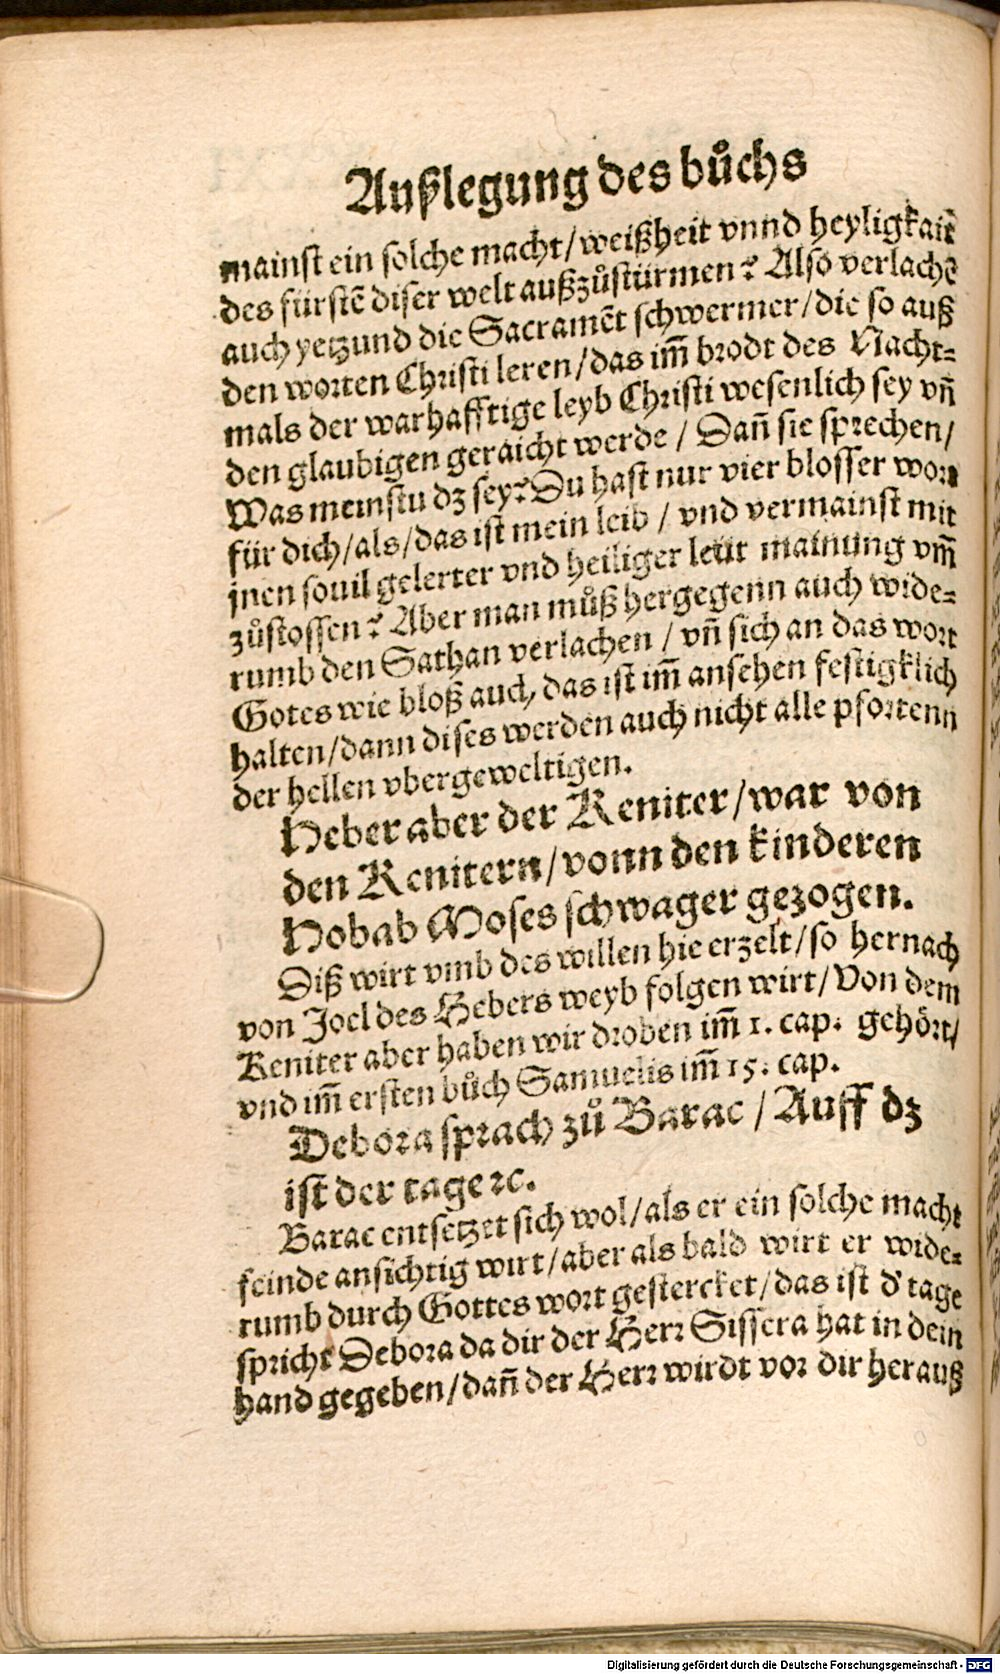 Außlegung des bůchs
mainst ein solche macht/weißheit vnnd heyligkaitẽ
des fürstẽ diser welt außzůstürmen? Also verlachẽ
auch yetzund die Sacramẽt schwermer/die so auß
den worten Christi leren/das im̃ brodt des Nacht=
mals der warhafftige leyb Christi wesenlich sey vñ
den glaubigen geraicht werde / Dañ sie sprechen/
Was meinstu dz sey? Du hast nur vier blosser wort
für dich/als/das ist mein leib / vnd vermainst mit
jnen souil gelerter vnd heiliger leüt mainung vm̃
zůstossen? Aber man můß hergegenn auch wide=
rumb den Sathan verlachen / vñ sich an das wort
Gotes wie bloß auch, das ist im̃ ansehen festigklich
halten/dann dises werden auch nicht alle pfortenn
der hellen vbergeweltigen.
Heber aber der Keniter/war von
den Kenitern/vonn den kinderen
Hobab Moses schwager gezogen.
Diß wirt vmb des willen hie erzelt/so hernach
von Joel des Hebers weyb folgen wirt/Von dem
Keniter aber haben wir droben im̃ 1. cap. gehört/
vnd im̃ ersten bůch Samuelis im̃ 15. cap.
Debora sprach zů Barac / Auff dz
ist der tage ꝛc.
Barac entsetzet sich wol/als er ein solche macht
feinde ansichtig wirt/aber als bald wirt er wide=
rumb durch Gottes wort gestercket/das ist d' tage
spricht Debora da dir der Herr Sissera hat in dein
hand gegeben/dañ der Herr wirdt vor dir herauß
Digitalisierung gefördert durch die Deutsche Forschungsgemeinschaft - DFG